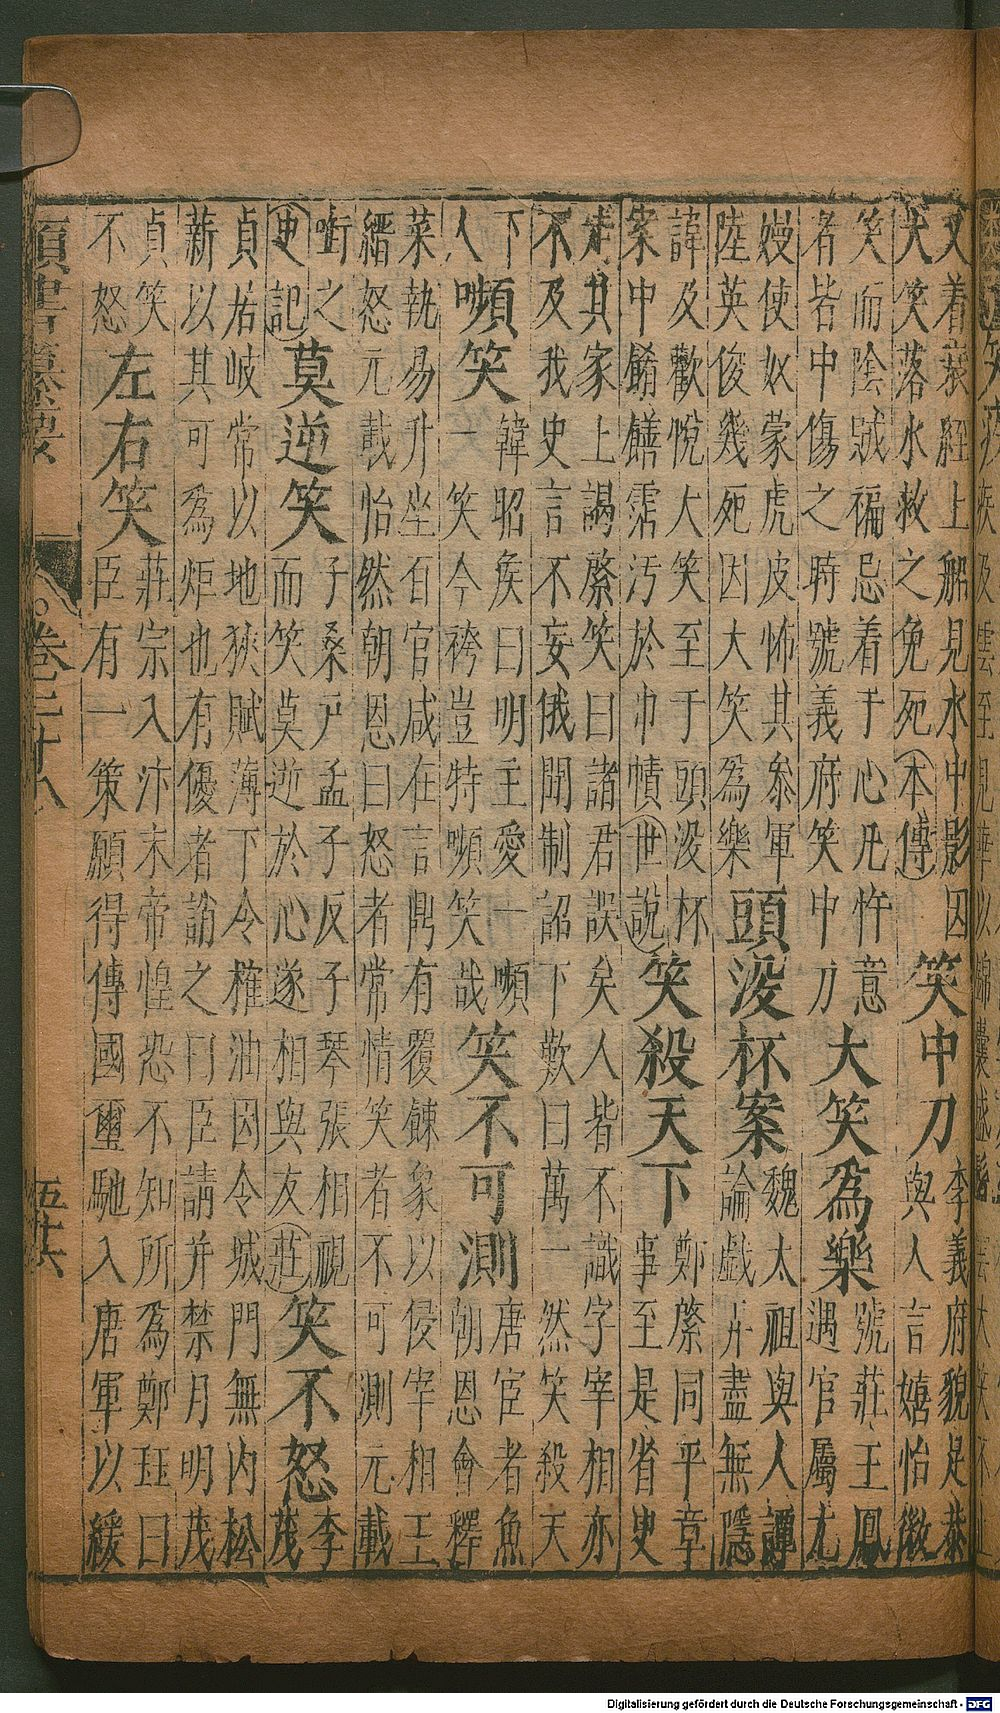 又着衰絰上船見水中影因
大笑落水救之免死本傳
笑中刀
李義府貌足恭
與人言嬉怡微
笑而陰賊褊忌着于心凡忤意
者皆中傷之時號義府笑中刀
大笑為樂
號莊王鳳
遇官屬尤
嫚使奴蒙虎皮怖其叅軍
陸英俊幾死因大笑為樂
頭没杯案
魏太祖與人譚
論戱弄盡無隱
諱及歡悅大笑至于頭没杯
案中餚饍霑汚於巾幘世說
笑殺天下
鄭綮同平章
事至是省史
走其家上謁綮笑曰諸君誤矣人皆不識字宰相亦
不及我史言不妄俄聞制詔下歎曰萬一然笑殺天
下
人
嚬笑
韓昭矦曰明主愛一嚬
一笑今袴豈特嚬笑哉
笑不可測
唐宦者魚
朝恩會釋
菜執易升坐百官咸在言鼎有覆餗象以侵宰相王
縉怒元載怡然朝恩曰怒者常情笑者不可測元載
銜之
史記
莫逆笑
子桑戸孟子反子琴張相視
而笑莫逆於心遂相與友莊
笑不怒
李
茂
貞居岐常以地狹賦薄下令榷油因令城門無内松
薪以其可為炬也有優者誚之曰臣請并禁月明茂
貞笑
不怒
左右笑
莊宗入汴末帝惶恐不知所為鄭珏曰
臣有一策願得傳國璽馳入唐軍以緩
類書纂要
卷二十八
五十六
Digitalisierung gefördert durch die Deutsche Forschungsgemeinschaft - DFG